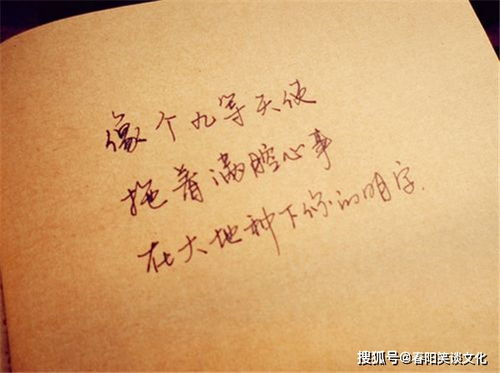 像个九等天使
拖着满腔心事
在大地种下你的名字.
搜狐号@春阳笑谈文化